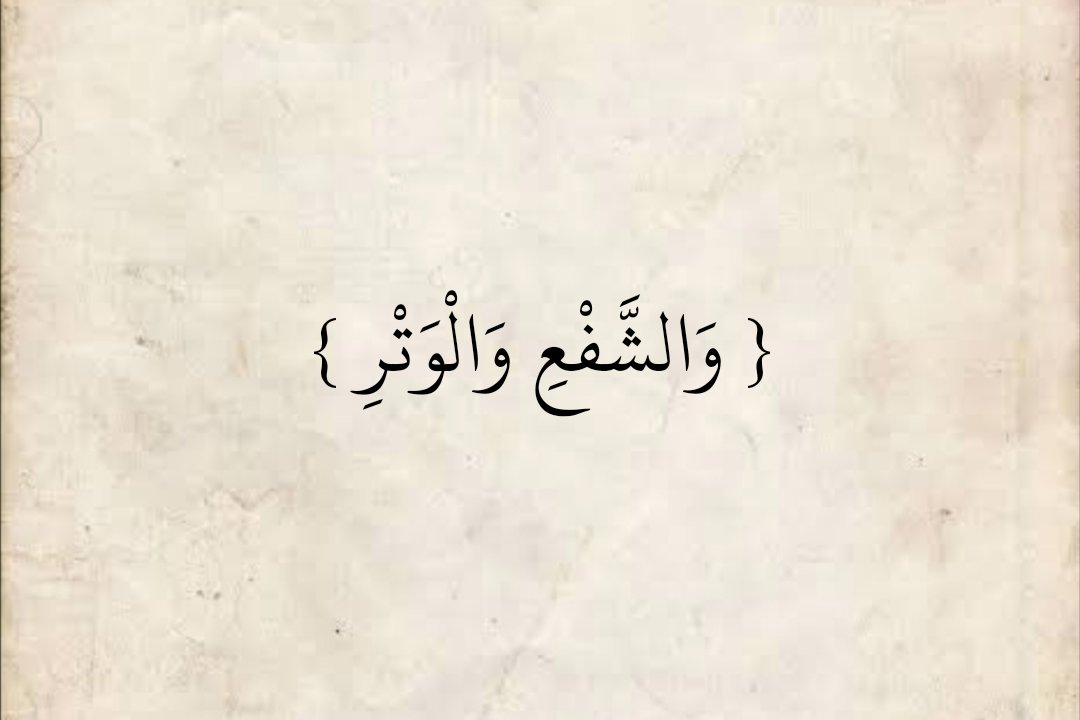 { وَالشَّفْعِ وَالْوَتْرِ }